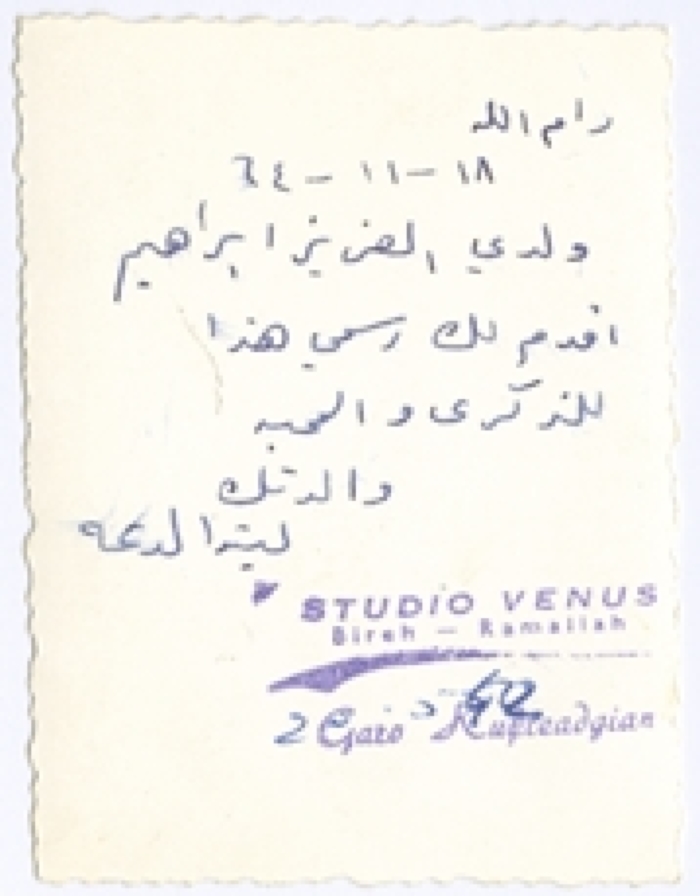 رام الله
١٨ - ١١ - ٦٤
ولدي العزيز ابراهيم
اقدم لك رسمي هذا
للذكرى و المحبه
والدتك
ليندا
STUDIO VENUS
Bireh - Ramallah
Garo Kufteadgian